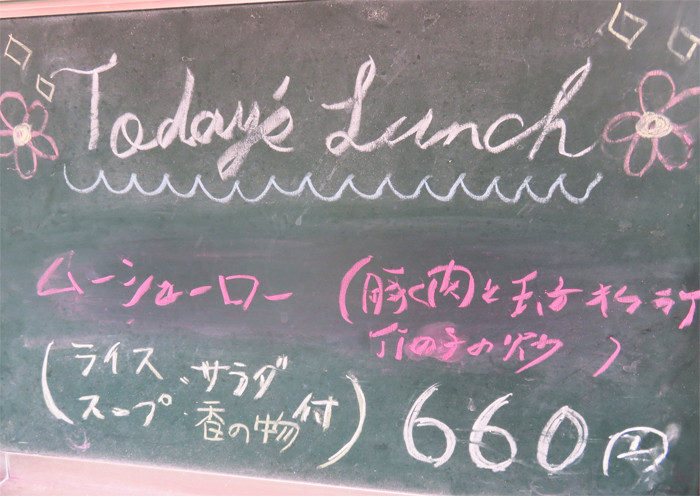 Today's Lunch
ムーシューロー (豚肉と玉子キクラゲ
竹の子の炒)
(ライス、サラダ
スープ・香の物付)
660円